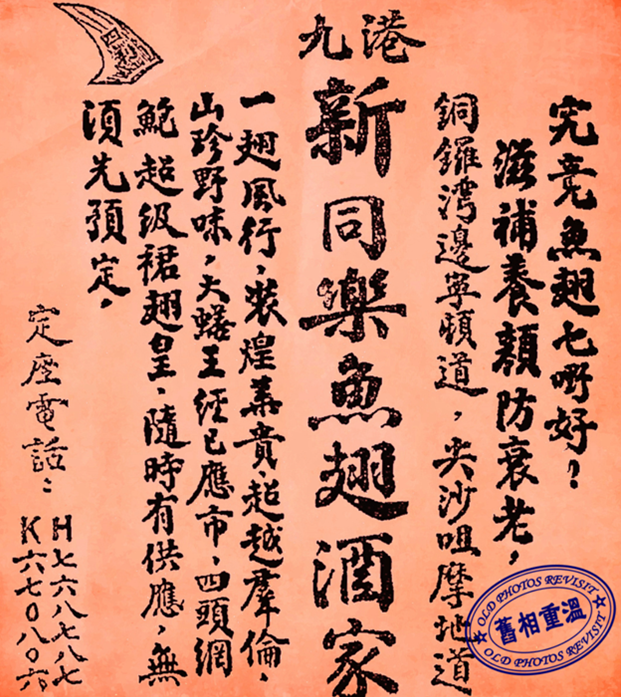 究竟魚翅乜嘢好?
滋補養顏防衰老,
銅鑼灣邊寧頓道,尖沙咀摩地道
港九
新同樂魚翅酒家
一翅風行,裝煌華貴超越羣倫,
山珍野味,大王經已應市,四頭網
鮑超級裙翅皇,隨時有供應,無
須先預定,
定座電話:
H七六八七八七
K六七〇八〇六
OLD PHOTOS REVISIT
舊相重溫
OLD PHOTOS REVISIT